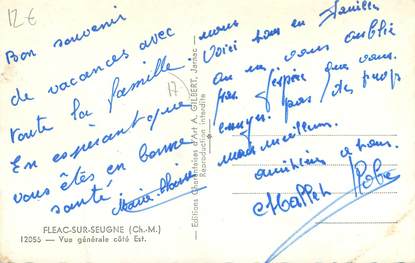 12€
Bon souvenir
de vacances avec
toute la famille.
En espérant que
vous êtes en bonne
santé.
Marie
17
FLEAC-SUR-SEUGNE (Ch.-M.)
12055 — Vue générale côté Est.
Editions d'Art A. GILBERT, Jarnac —
Reproduction interdite
nous
Voici tous en famille
on ne vous oublie
pas. J'espère que vous
pas trop
nos meilleures
amitiés à tous.
Mallet